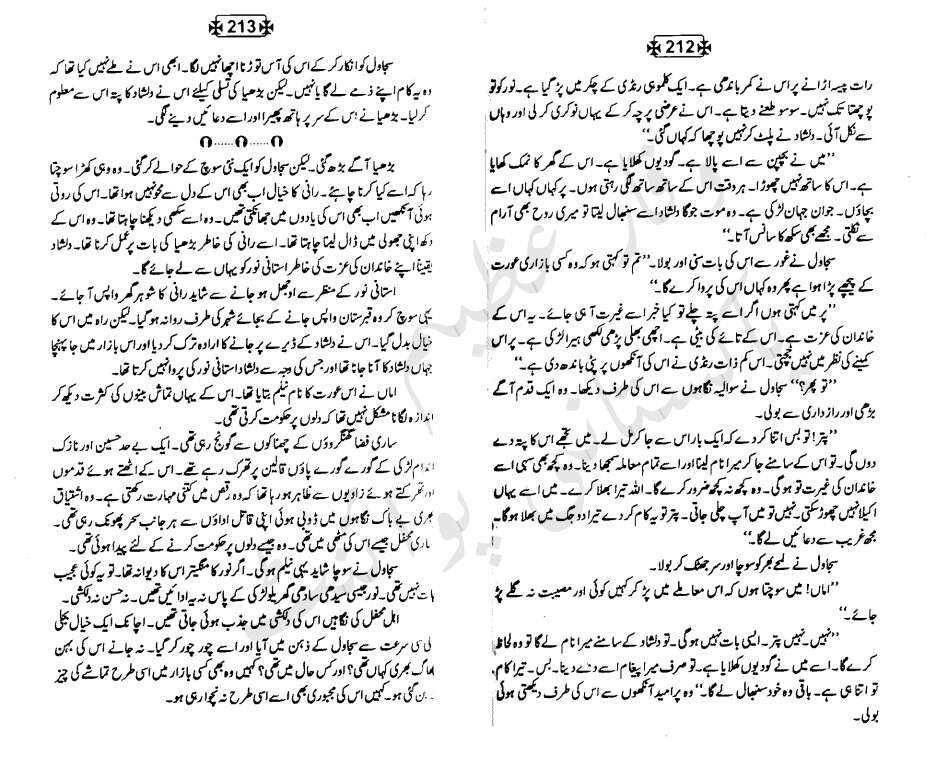 212
رات پیسہ اڑانے پر اس نے کمر باندھی ہے۔ ایک کلموہی رنڈی کے چکر میں پڑ گیا ہے۔ نور کو تو
پوچھتا تک نہیں۔ سو سو طعنے دیتا ہے۔ اس نے عرضی پرچہ کر کے یہاں نوکری کر لی اور وہاں
سے نکل آئی۔ دلشاد نے پلٹ کر نہیں پوچھا کہ کہاں گئی۔‘‘
’’میں نے بچپن سے اسے پالا ہے۔ گودیوں کھلایا ہے۔ اس کے گھر کا نمک کھایا
ہے۔ اس کا ساتھ نہیں چھوڑا۔ ہر وقت اس کے ساتھ ساتھ لگی رہتی ہوں۔ پر کہاں کہاں اسے
بچاؤں۔ جوان جہان لڑکی ہے۔ وہ موت جوگا دلشاد اسے سنبھال لیتا تو میری روح بھی آرام
سے نکلتی۔ مجھے بھی سکھ کا سانس آتا۔‘‘
سجاول نے غور سے اس کی بات سنی اور بولا۔ ’’تم تو کہتی ہو کہ وہ کسی بازاری عورت
کے پیچھے پڑا ہوا ہے پھر وہ کہاں اس کی پروا کرے گا۔‘‘
’’پر میں کہتی ہوں اگر اسے پتہ چلے تو کیا خبر اسے غیرت آ ہی جائے۔ یہ اس کے
خاندان کی عزت ہے۔ اس کے تائے کی بیٹی ہے۔ اچھی بھلی پڑھی لکھی ہیرا لڑکی ہے۔ پر اس
کمینے کی نظر میں نہیں جچتی۔ اس کم ذات رنڈی نے اس کی آنکھوں پر پٹی باندھ دی ہے۔‘‘
’’تو پھر؟‘‘ سجاول نے سوالیہ نگاہوں سے اس کی طرف دیکھا۔ وہ ایک قدم آگے
بڑھی اور رازداری سے بولی۔
’’پتر! تو بس اتنا کر دے کہ ایک بار اس سے جا کر مل لے۔ میں تجھے اس کا پتہ دے
دوں گی۔ تو اس کے سامنے جا کر میرا نام لینا اور اسے تمام معاملہ سمجھا دینا۔ وہ کچھ بھی سہی اسے
خاندان کی غیرت تو ہو گی۔ وہ کچھ نہ کچھ ضرور کرے گا۔ اللہ تیرا بھلا کرے۔ میں اسے یہاں
اکیلا نہیں چھوڑ سکتی۔ نہیں تو میں آپ چلی جاتی۔ پتر تو یہ کام کر دے تیرا دو جگ میں بھلا ہوگا۔
مجھ غریب سے دعائیں لے گا۔‘‘
سجاول نے لمحے بھر کو سوچا اور سر جھٹک کر بولا۔
’’اماں! میں سوچتا ہوں کہ اس معاملے میں پڑ کر کہیں کوئی اور مصیبت نہ گلے پڑ
جائے۔‘‘
’’نہیں۔ نہیں پتر۔ ایسی بات نہیں ہوگی۔ تو دلشاد کے سامنے میرا نام لے گا تو وہ لحاظ
کرے گا۔ اسے میں نے گودیوں کھلایا ہے۔ تو صرف میرا پیغام اسے دے دینا۔ بس۔ تیرا کام،
تو اتنا ہی ہے۔ باقی وہ خود سنبھال لے گا۔‘‘ وہ پرامید آنکھوں سے اس کی طرف دیکھتی ہوئی
بولی۔
213
سجاول کو انکار کر کے اس کی آس توڑنا اچھا نہیں لگا۔ ابھی اس نے طے نہیں کیا تھا کہ
وہ یہ کام اپنے ذمے لے گا یا نہیں۔ لیکن بڑھیا کی تسلی کیلئے اس نے دلشاد کا پتہ اس سے معلوم
کر لیا۔ بڑھیا نے اس کے سر پر ہاتھ پھیرا اور اسے دعائیں دینے لگی۔
بڑھیا آگے بڑھ گئی۔ لیکن سجاول کو ایک نئی سوچ کے حوالے کر گئی۔ وہ وہی کھڑا سوچتا
رہا کہ اسے کیا کرنا چاہئے۔ رانی کا خیال اب بھی اس کے دل سے محو نہیں ہوا تھا۔ اس کی روتی
ہوئی آنکھیں اب بھی اس کی یادوں میں جھانکتی تھیں۔ وہ اسے سکھی دیکھنا چاہتا تھا۔ وہ اس کے
دکھ اپنی جھولی میں ڈال لینا چاہتا تھا۔ اسے رانی کی خاطر بڑھیا کی بات پر عمل کرنا تھا۔ دلشاد
یقیناً اپنے خاندان کی عزت کی خاطر استانی نور کو یہاں سے لے جائے گا۔
استانی نور کے منظر سے اوجھل ہو جانے سے شاید رانی کا شوہر گھر واپس آ جائے۔
یہی سوچ کر وہ قبرستان واپس جانے کے بجائے شہر کی طرف روانہ ہو گیا۔ لیکن راہ میں اس کا
خیال بدل گیا۔ اس نے دلشاد کے ڈیرے پر جانے کا ارادہ ترک کر دیا اور اس بازار میں جا پہنچا
جہاں دلشاد کا آنا جانا تھا اور جس کی وجہ سے دلشاد استانی نور کی پروا نہیں کرتا تھا۔
اماں نے اس عورت کا نام نیلم بتایا تھا۔ اس کے یہاں تماش بینوں کی کثرت دیکھ کر
اندازہ لگانا مشکل نہیں تھا کہ دلوں پر حکومت کرتی تھی۔
ساری فضا گھنگروؤں کے چھناکوں سے گونج رہی تھی۔ ایک بے حد حسین اور نازک
اندام لڑکی کے گورے گورے پاؤں قالین پر تھرک رہے تھے۔ اس کے اٹھتے ہوئے قدموں
اور تھرکتے ہوئے زاویوں سے ظاہر ہو رہا تھا کہ وہ رقص میں کتنی مہارت رکھتی ہے۔ وہ اشتیاق
بھری بے باک نگاہوں میں ڈوبی ہوئی اپنی قاتل اداؤں سے ہر جانب سحر پھونک رہی تھی۔
ساری محفل جیسے اس کی مٹھی میں تھی۔ وہ جیسے دلوں پر حکومت کرنے کے لئے پیدا ہوئی تھی۔
سجاول نے سوچا شاید یہی نیلم ہوگی۔ اگر نور کا منگیتر اس کا دیوانہ تھا۔ تو یہ کوئی عجیب
بات نہیں تھی۔ نور جیسی سیدھی سادھی گھریلو لڑکی کے پاس نہ یہ ادائیں تھیں۔ نہ حسن نہ دلکشی۔
اہل محفل کی نگاہیں اس کی دلکشی میں جذب ہوئی جاتی تھیں۔ اچانک ایک خیال بجلی
کی سی سرعت سے سجاول کے ذہن میں آیا اور اسے چور چور کر گیا۔ نہ جانے اس کی بہن
بھاگ بھری کہاں تھی؟ اور کس حال میں تھی؟ کہیں وہ بھی کسی بازار میں اسی طرح تماشے کی چیز
بن گئی ہو۔ کہیں اس کی مجبوری بھی اسے اسی طرح نہ نچوا رہی ہو۔